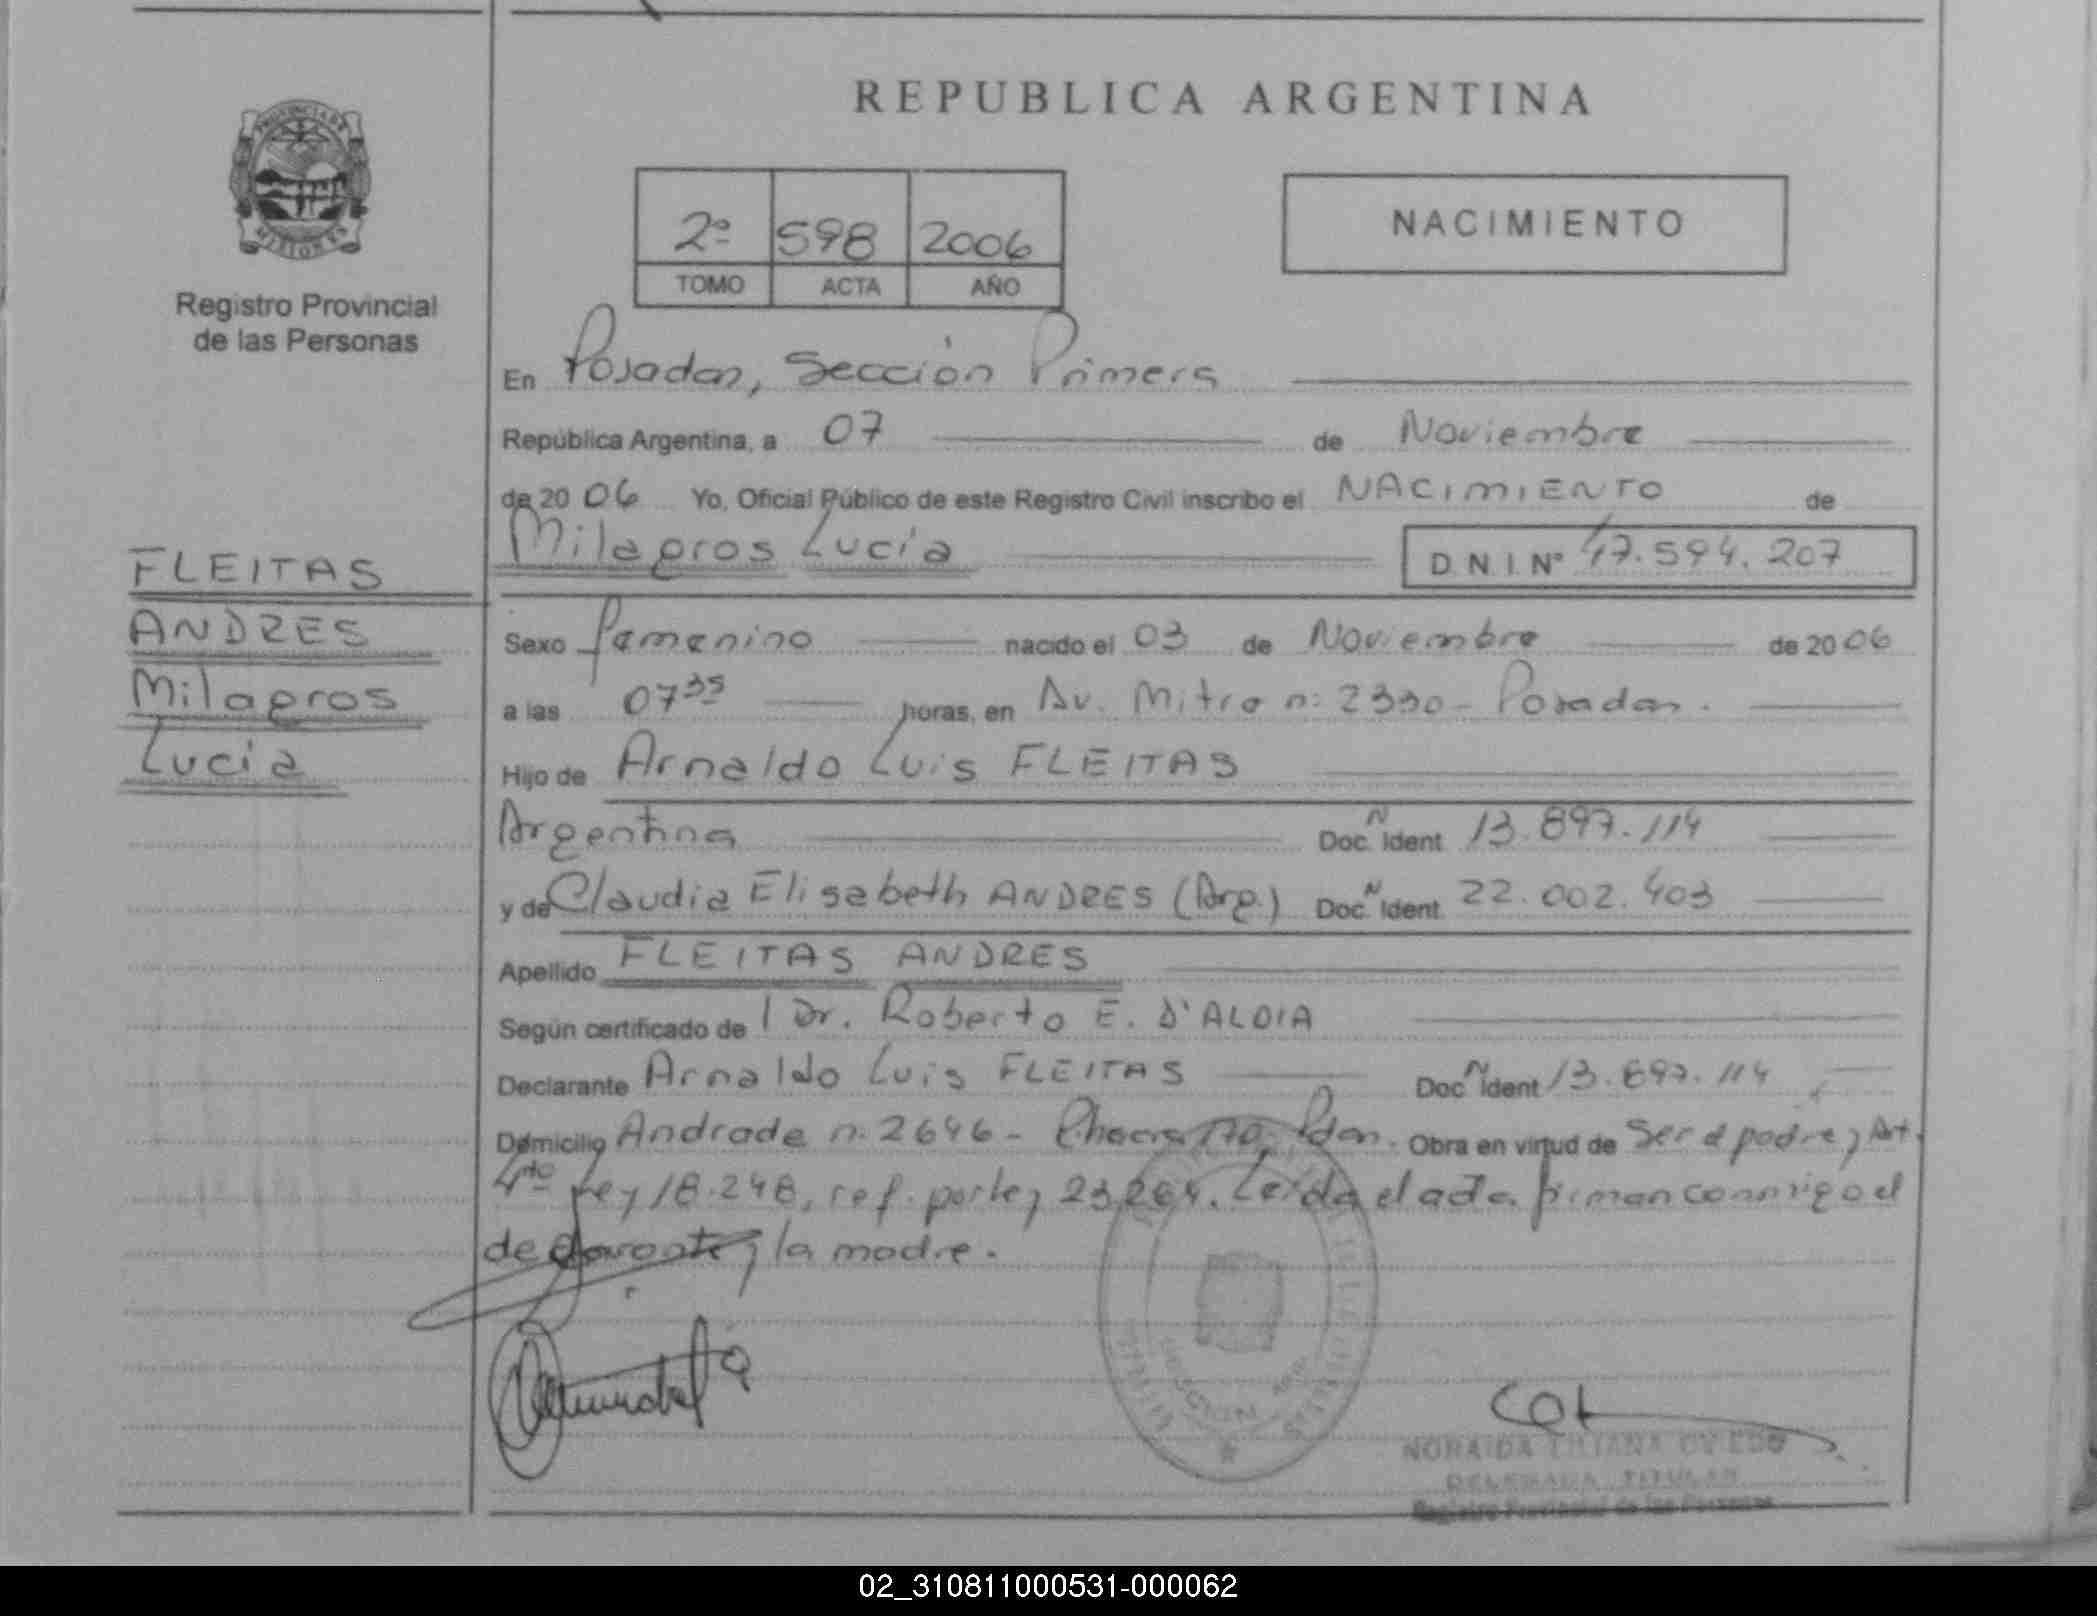 REPUBLICA ARGENTINA
PROVINCIA DE MISIONES
Registro Provincial
de las Personas
2º 598 2006
TOMO ACTA AÑO
NACIMIENTO
En Posadas, Sección Primera
República Argentina, a 07 de Noviembre
de 20 06 Yo, Oficial Público de este Registro Civil inscribo el NACIMIENTO de
Milagros Lucía
D.N.I. Nº 47.594.207
FLEITAS
ANDRES
Milagros
Lucía
Sexo femenino nacido el 03 de Noviembre de 20 06
a las 07 35 horas, en Av. Mitre n: 2330 - Posadas.
Hijo de Arnaldo Luis FLEITAS
Argentina Doc. N Ident 13.897.114
y de Claudia Elisabeth ANDRES (Arg.) Doc. N Ident. 22.002.403
Apellido FLEITAS ANDRES
Según certificado de Dr. Roberto E. D'ALOIA
Declarante Arnaldo Luis FLEITAS Doc N Ident 13.897.114
Domicilio Andrade n. 2646 - Pdas. Obra en virtud de Ser el padre y Art.
4to Ley 18.248, ref. por ley 23.264. Leída el acta firman conmigo el
declarante y la madre.
NORAIDA LILIANA OVIEDO
DELEGADA TITULAR
Registro Provincial de las Personas
02_310811000531-000062